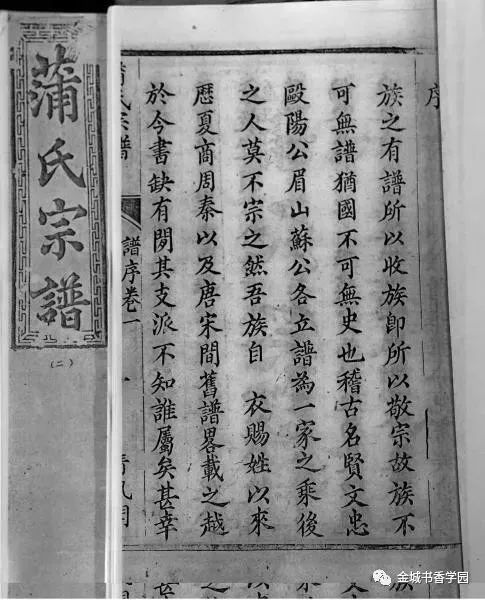 序
族之有譜所以收族卽所以敬宗故族不
可無譜猶國不可無史也稽古名賢文忠
毆陽公眉山蘇公各立譜為一家之乘後
之人莫不宗之然吾族自 衣賜姓以來
歴夏商周秦以及唐宋間舊譜畧載之越
於今書缺有閒其支派不知誰屬矣甚幸
蒲氏宗譜
譜序卷一
蒲氏宗譜
(二)
金城书香学园